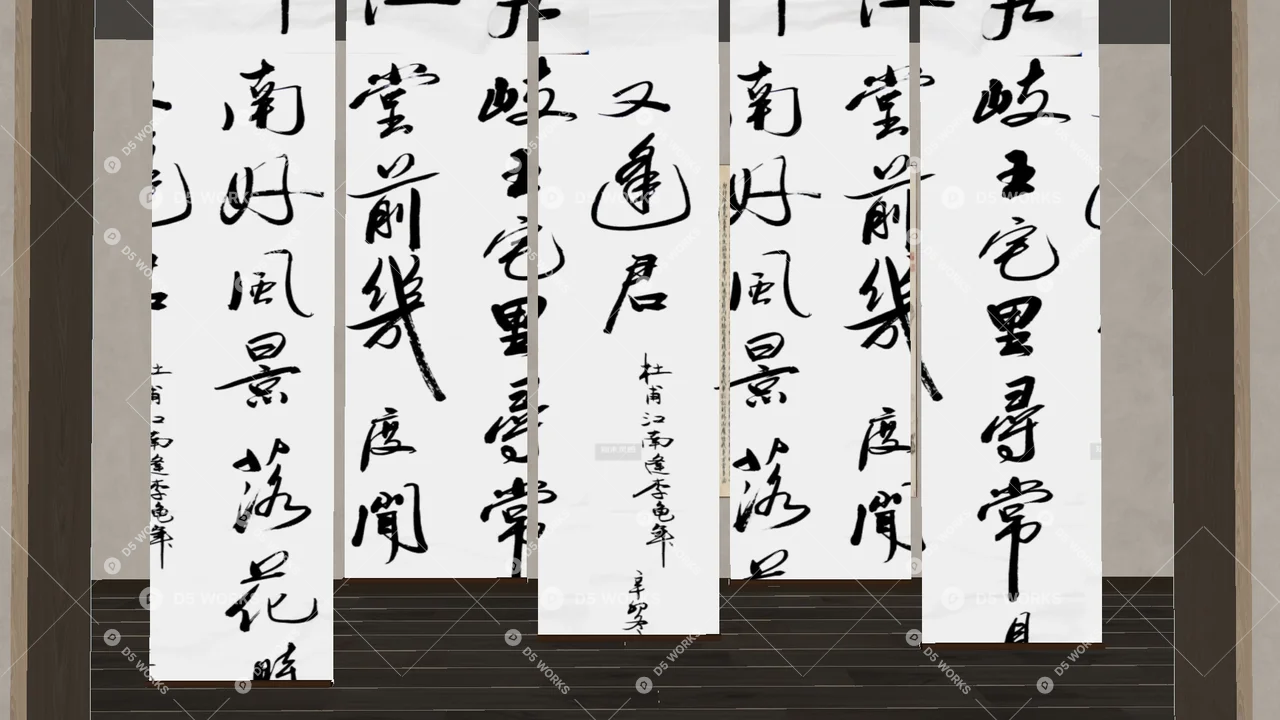 岐王宅里尋常
堂前幾度聞
南好風景落
又逢君
杜甫江南逢李龜年
辛卯冬
岐王宅里尋常
堂前幾度聞
南好風景落花時
D5 WORKS